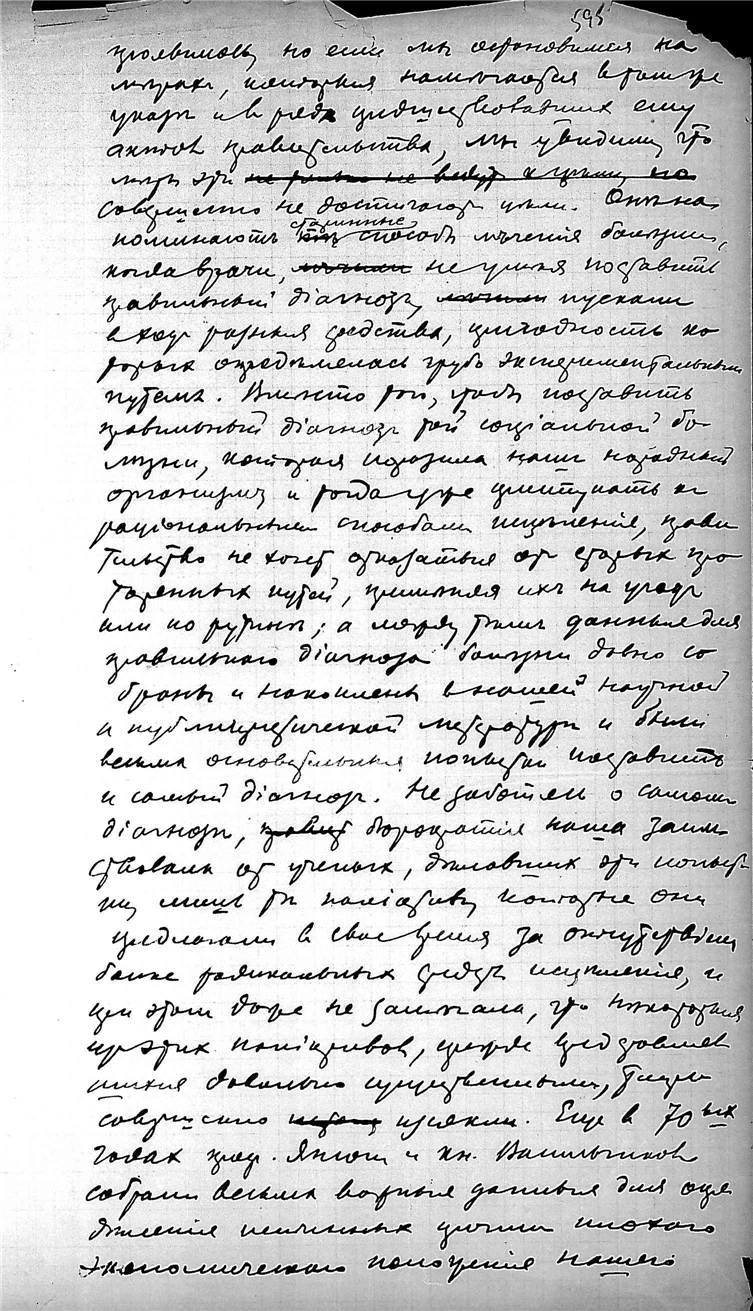 595
но если мы остановимся на
мерах, которыя намечаются в том же
указе и в ряде предшествовавших ему
актов правительства, мы увидим, что
меры эти не только не ведут к цели, но
совершенно не достигают цели. Оне на
поминают старинные способы лечения болезни,
когда врачи, не умея поставить
правильный діагноз, пускали
в ход разныя средства, пригодность ко
торых определялась грубо экспериментальным
путем. Вместо того, чтобы поставить
правильный діагноз той соціальной бо
лезни, которая поразила наш народный
организм и тогда уже приступить к
раціональным способам исцеления, прави
тельство не хочет отказаться от старых про
торенных путей, применяя их на
или по рутине; а между тем данныя для
правильного діагноза болезни давно со
браны и накоплены в нашей научной
и публицистической литературе и были
весьма основательныя попытки поставить
и самый діагноз. Не заботясь о самом
діагнозе, бюрократія наша заим
ствовала от ученых, делавших эти попыт
ки, лишь те паліативы, которые они
предлагали в свое время за отсутствіем
более радикальных средств исцеления, и
при этом даже не замечала, что некоторыя
из этих паліативов, прежде представляв
шихся довольно существенными, теперь
совершенно изсякли. Еще в 70ых
годах проф. Янсон и кн. Васильчиков
собрали весьма важныя данныя для опре
деления истинных причин плохого
экономического положения нашего